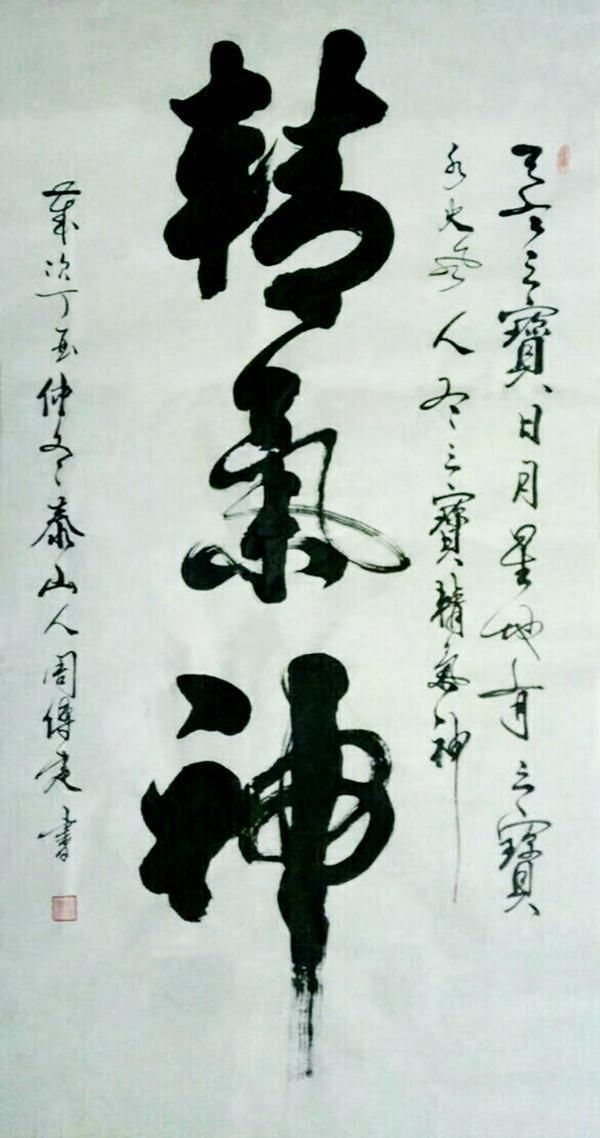 天有三寶日月星地有三寶
水火風人有三寶精氣神
精氣神
歲次丁酉仲冬泰山人周傳亮書